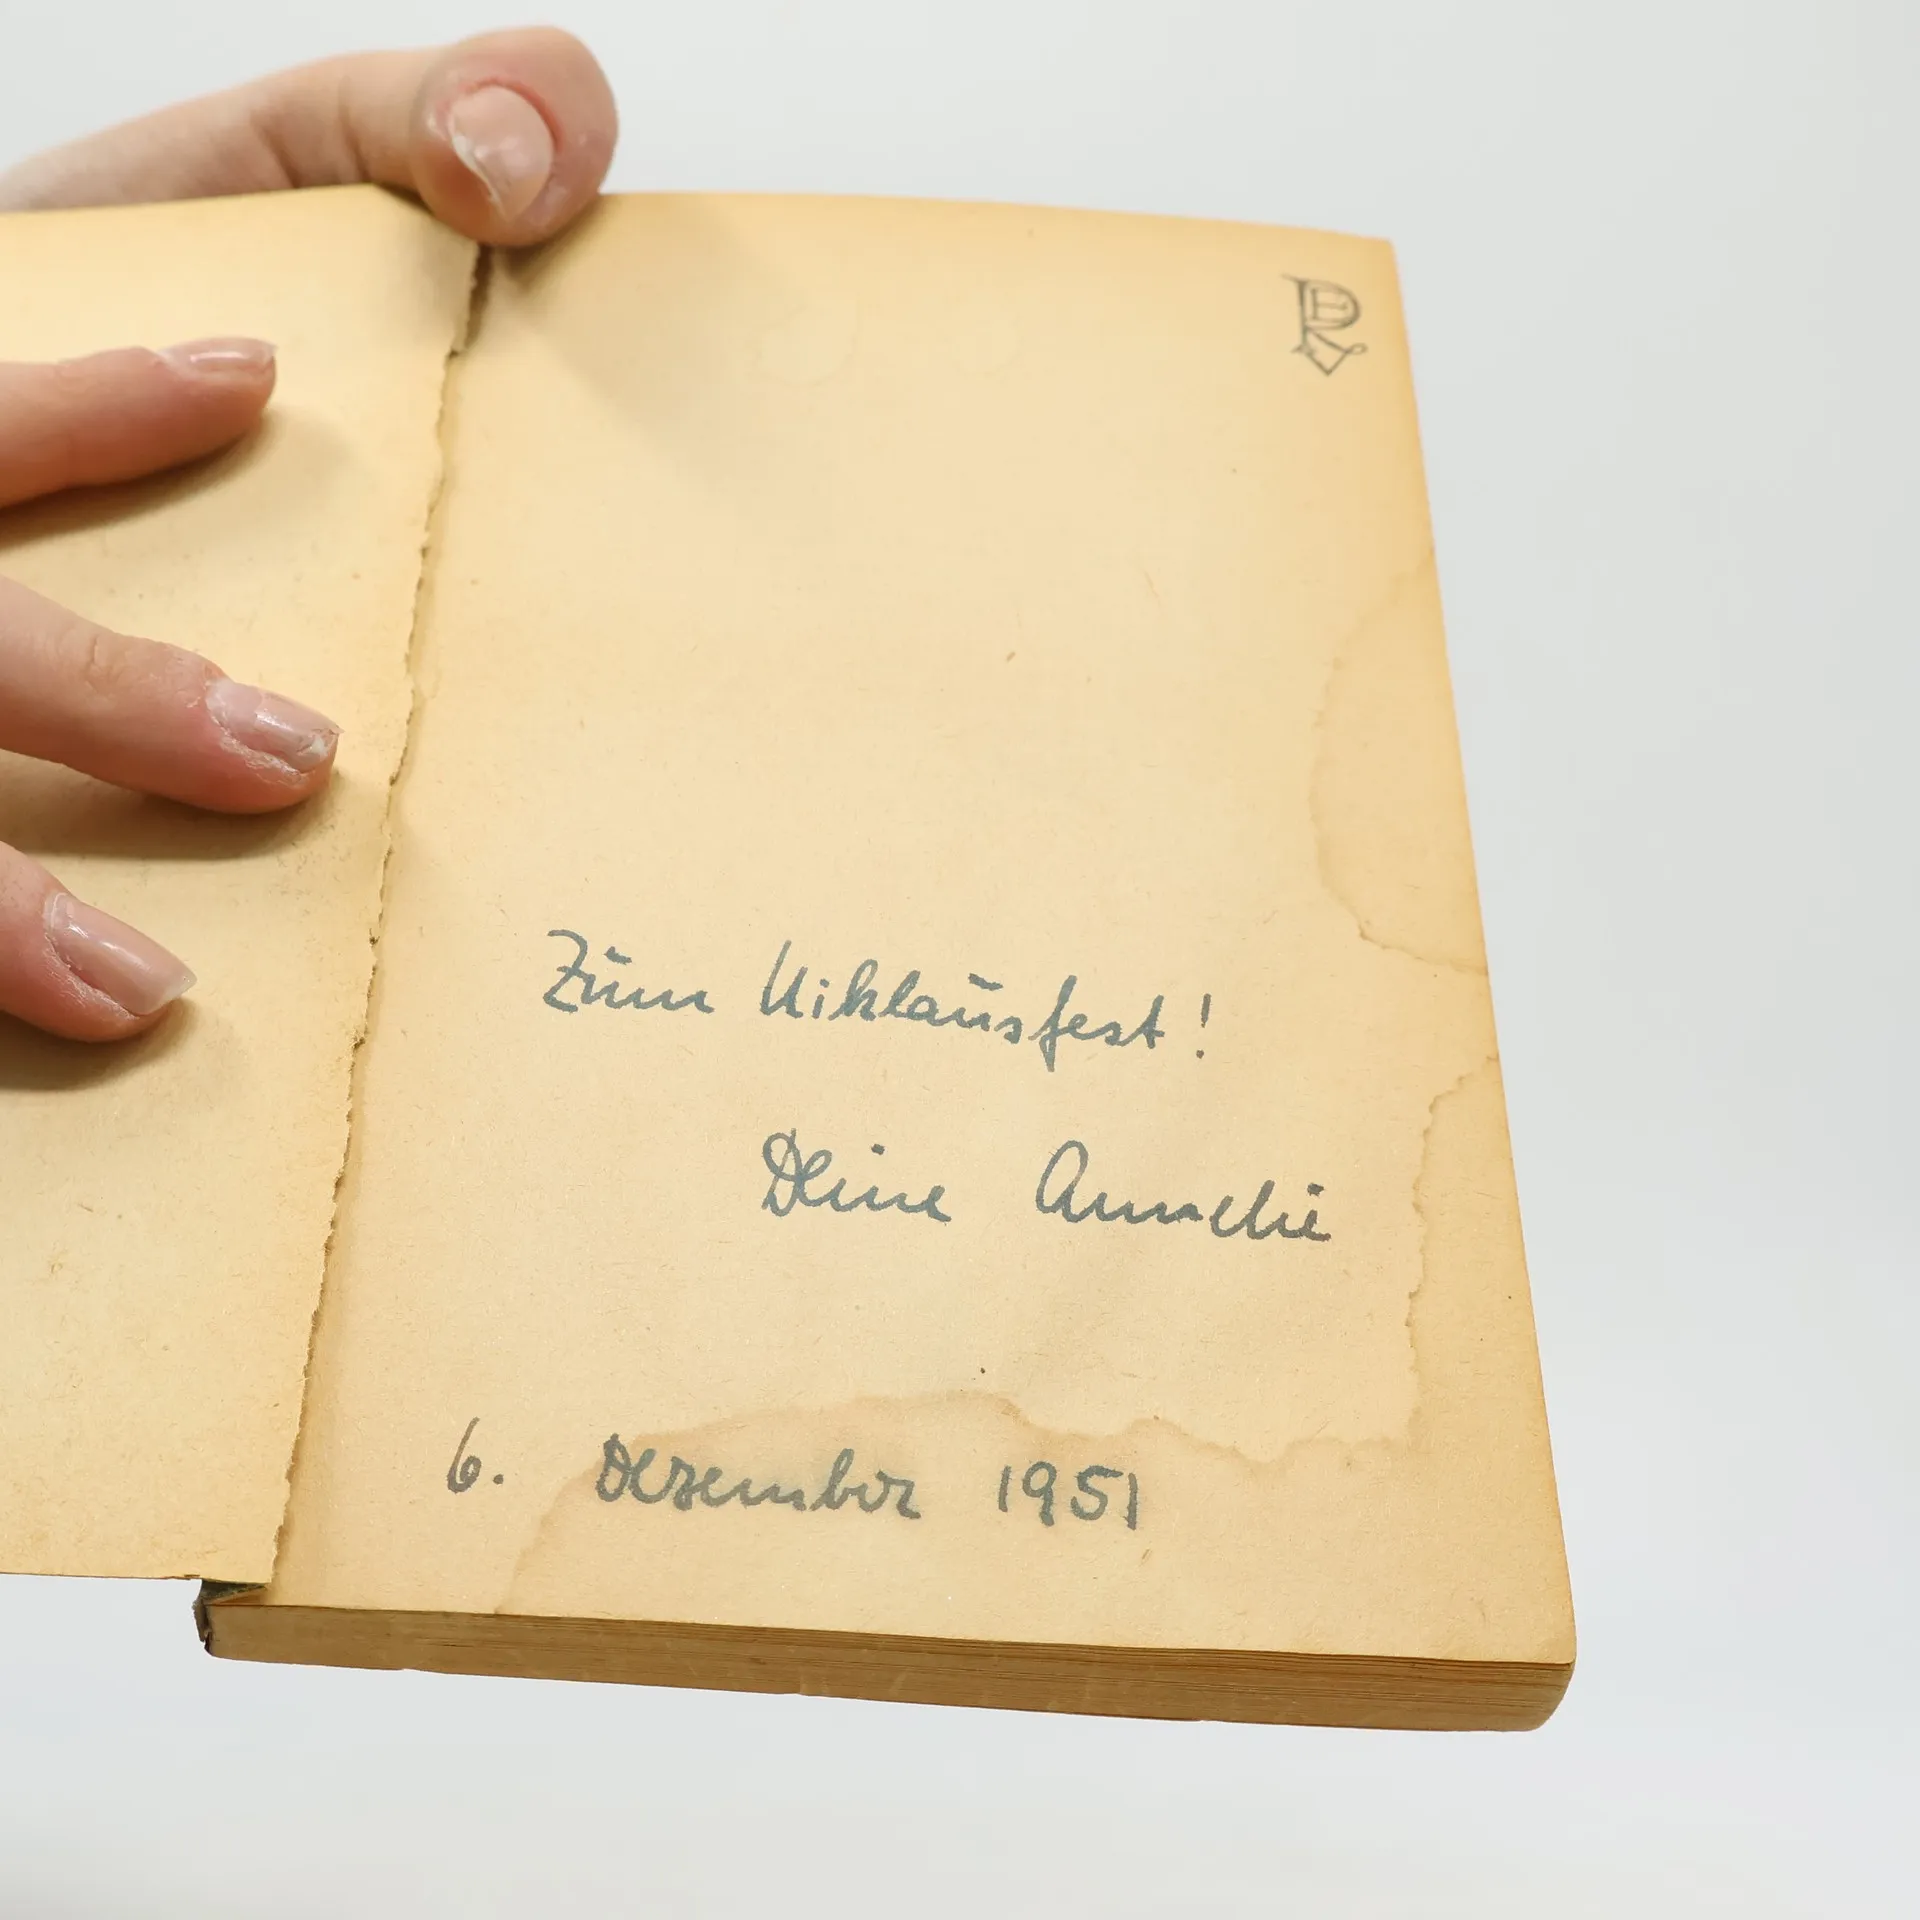 Zum Niklausfest!
Deine Annelie
6. Dezember 1951